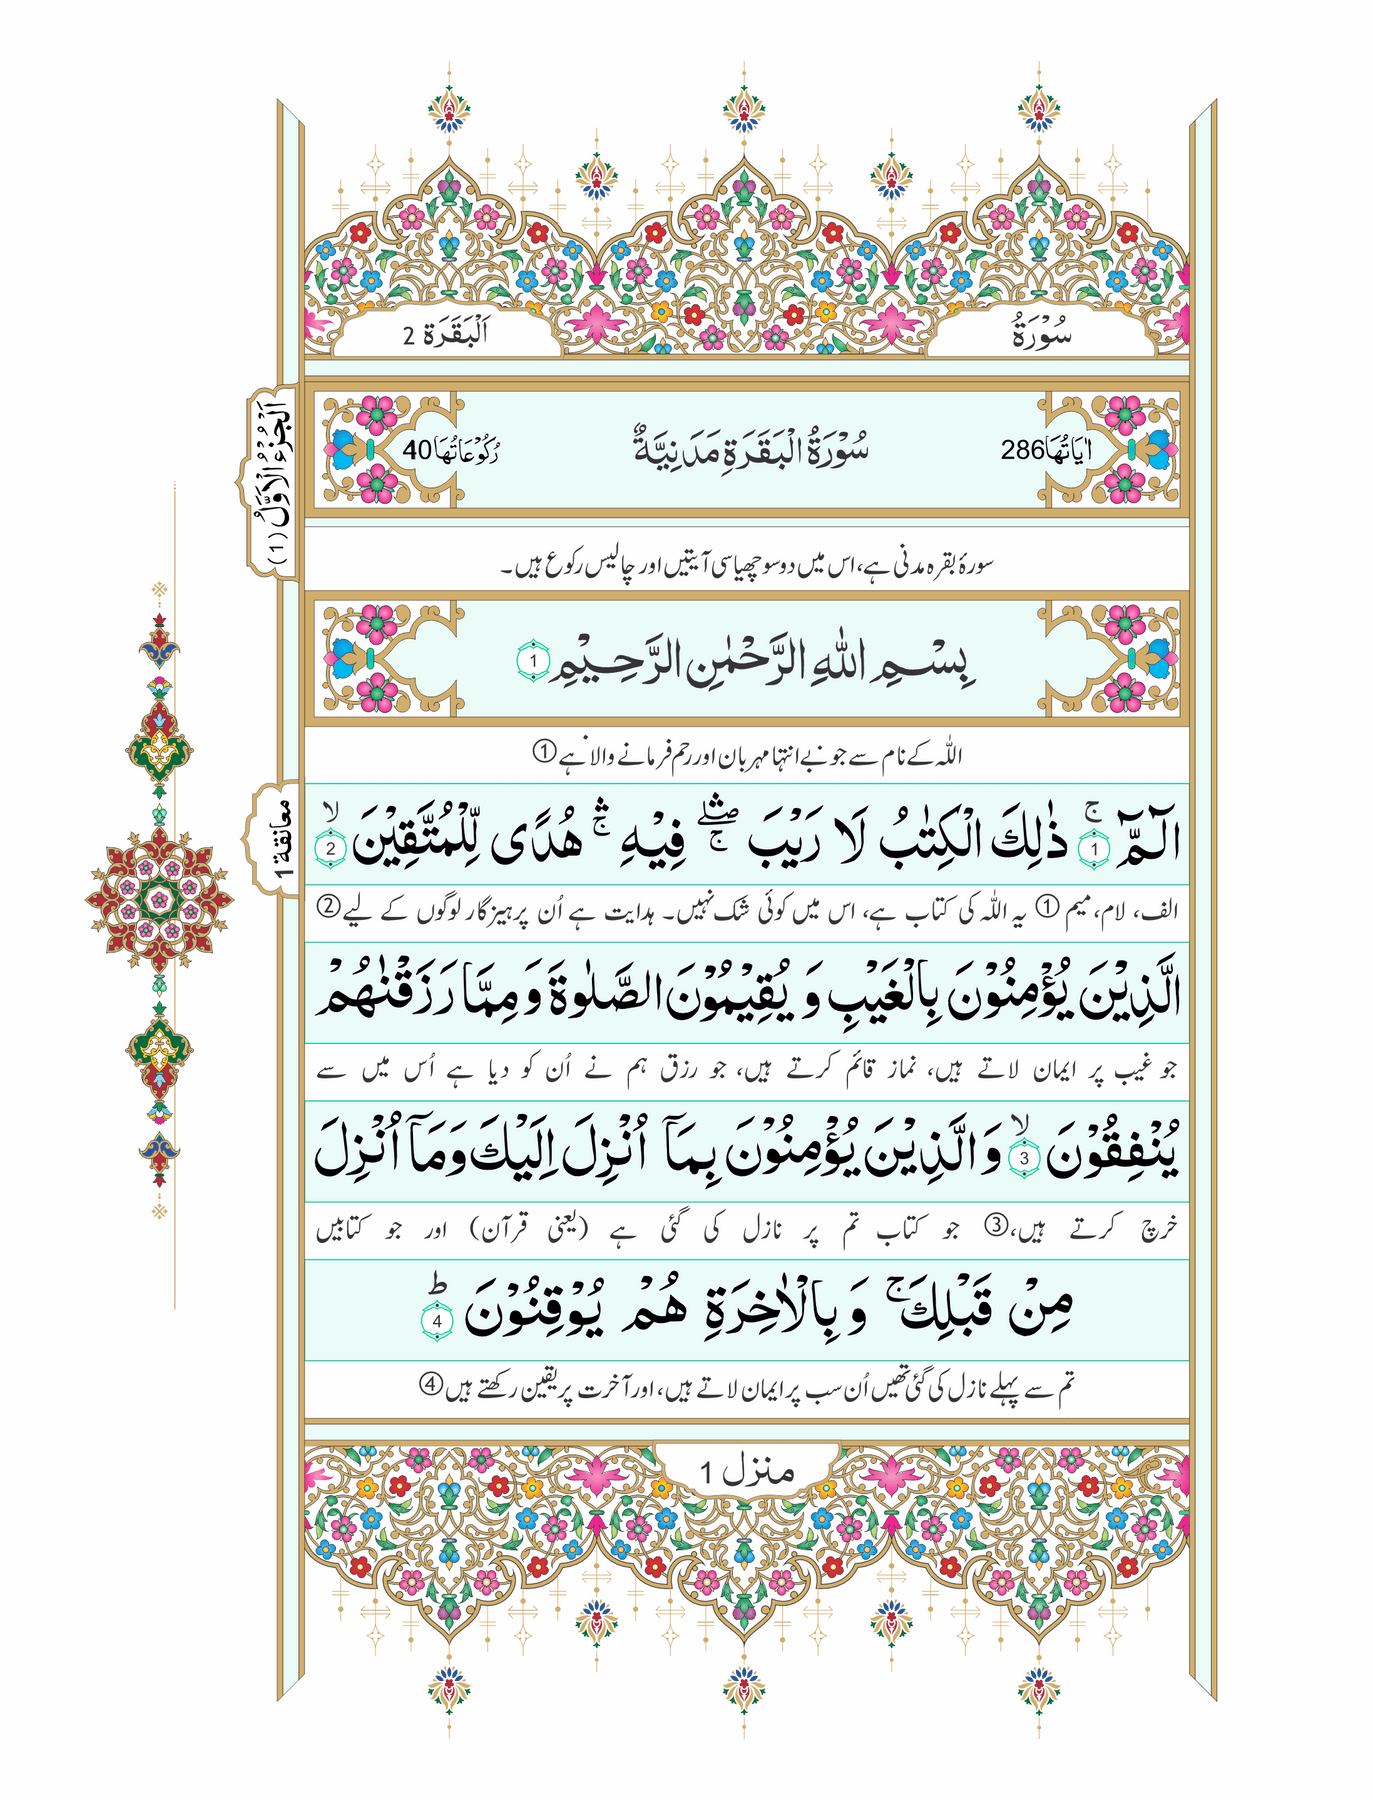 سُوْرَةُ
اَلْبَقَرَة 2
اٰیَاتُهَا286
سُوْرَةُ الْبَقَرَةِ مَدَنِیَّةٌ
رُكُوْعَاتُهَا40
اَلْجُزْءُ الْاَوَّلُ (1)
سورۂ بقرہ مدنی ہے، اس میں دوسو چھیاسی آیتیں اور چالیس رکوع ہیں۔
بِسْمِ اللّٰهِ الرَّحْمٰنِ الرَّحِیْمِ 1
اللّٰہ کے نام سے جو بے انتہا مہربان اور رحم فرمانے والا ہے ①
معانقة 1
الٓمّٓ ۚ 1 ذٰلِكَ الْكِتٰبُ لَا رَیْبَ ۖۛۚ فِیْهِ ۛۚ هُدًی لِّلْمُتَّقِیْنَ ۙ 2
الف، لام، میم ① یہ اللّٰہ کی کتاب ہے، اس میں کوئی شک نہیں۔ ہدایت ہے اُن پرہیزگار لوگوں کے لیے ②
الَّذِیْنَ یُؤْمِنُوْنَ بِالْغَیْبِ وَ یُقِیْمُوْنَ الصَّلٰوةَ وَ مِمَّا رَزَقْنٰهُمْ
جو غیب پر ایمان لاتے ہیں، نماز قائم کرتے ہیں، جو رزق ہم نے اُن کو دیا ہے اُس میں سے
یُنْفِقُوْنَ ۙ 3 وَ الَّذِیْنَ یُؤْمِنُوْنَ بِمَاۤ اُنْزِلَ اِلَیْكَ وَ مَاۤ اُنْزِلَ
خرچ کرتے ہیں، ③ جو کتاب تم پر نازل کی گئی ہے (یعنی قرآن) اور جو کتابیں
مِنْ قَبْلِكَ ۚ وَ بِالْاٰخِرَةِ هُمْ یُوْقِنُوْنَ ؕ 4
تم سے پہلے نازل کی گئی تھیں اُن سب پر ایمان لاتے ہیں، اور آخرت پر یقین رکھتے ہیں ④
منزل 1